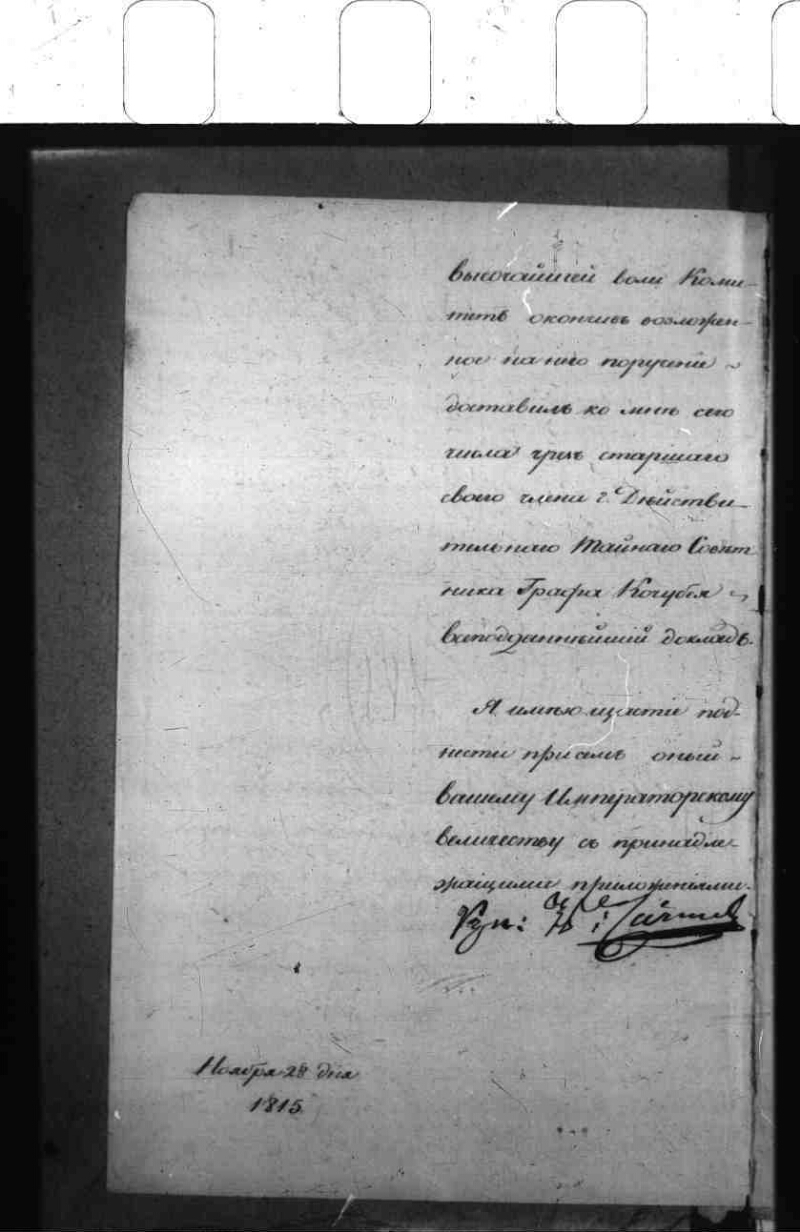 высочайшей воли Коми-
тетъ окончивъ возложен-
ное на него порученiе
доставилъ ко мнѣ сего
числа чрезъ старшаго
своего члена г. Дѣйстви-
тельнаго Тайнаго Совѣт
ника Графа Кочубея
всеподданнѣйшiй докладъ.
Я имѣю щастiе под-
нести при семъ оный
вашему Императорскому
величеству съ принадле-
жащими приложенiями.
Ноября 28 дня
1815